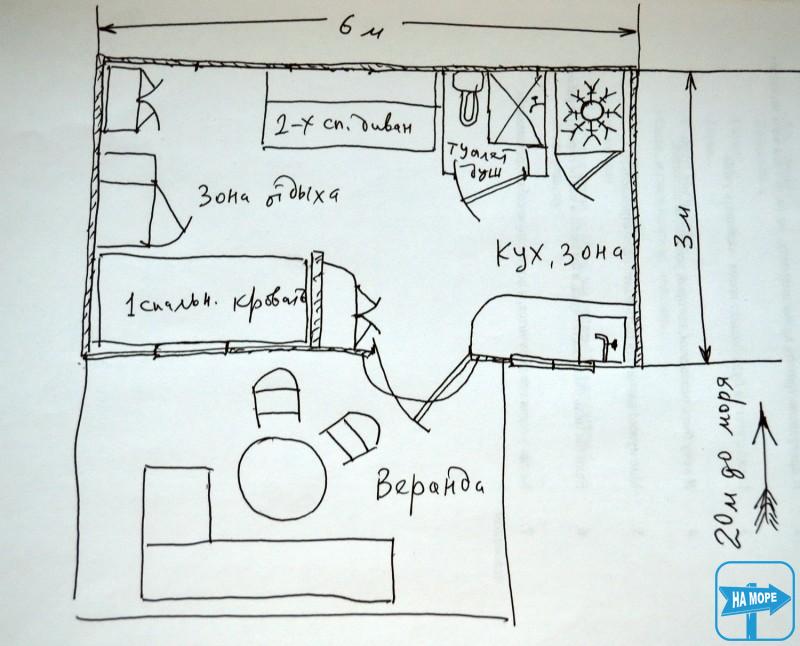 6 м
2-х сп. диван
туалет
душ
Зона отдыха
Кух, зона
3 м
1 спальн. кровать
Веранда
20 м до моря
НА МОРЕ